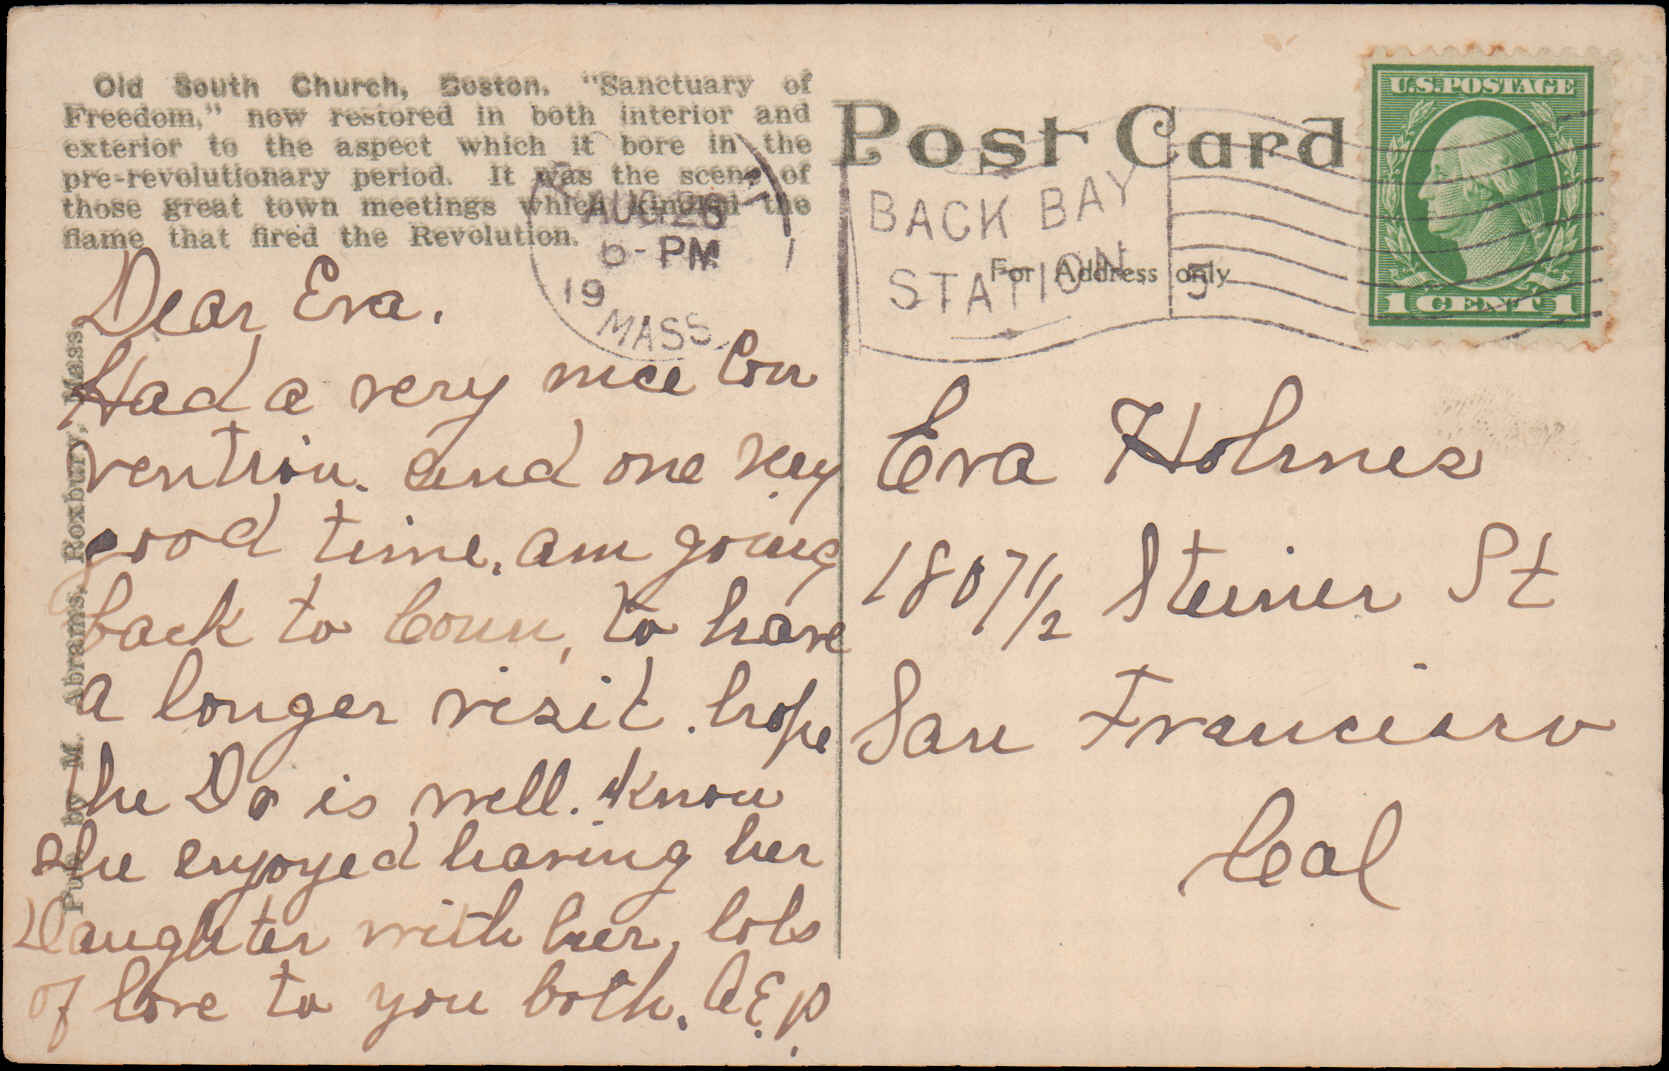 Old South Church, Boston. "Sanctuary of
Freedom," now restored in both interior and
exterior to the aspect which it bore in the
pre-revolutionary period. It was the scene of
those great town meetings which kindled the
flame that fired the Revolution.
Post Card
For Address only
AUG 26
PM
19
MASS
BACK BAY
STATION
5
U.S. POSTAGE
1 CENT 1
Pub. by M. Abrams, Roxbury, Mass.
Dear Eva.
Had a very nice Con
vention. and one very
good time. am going
back to Conn, to have
a longer visit. hope
the Dr is well. Know
she enjoyed having her
Daughter with her, lots
of love to you both. A.E.P.
Eva Holmes
1807 1/2 Steiner St
San Francisco
Cal